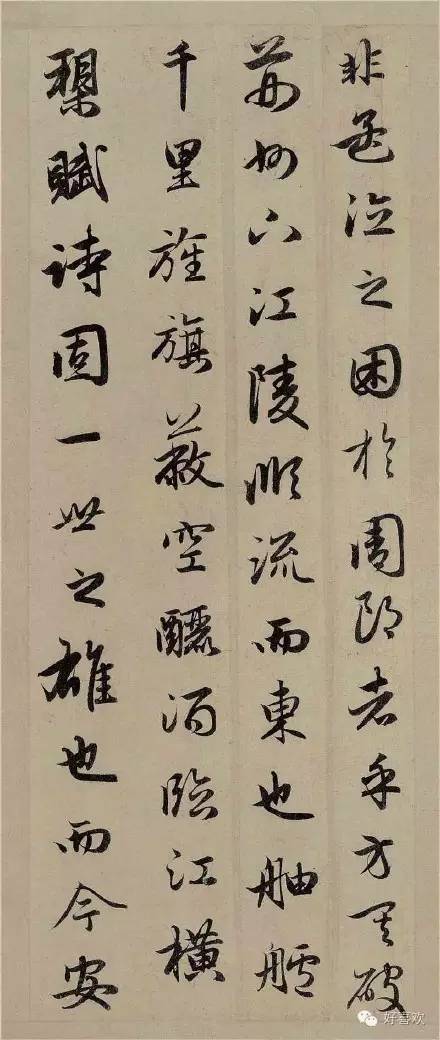 非孟德之困於周郎者乎方其破
荊州下江陵順流而東也舳艫
千里旌旗蔽空釃酒臨江橫
槊賦詩固一世之雄也而今安
好喜欢